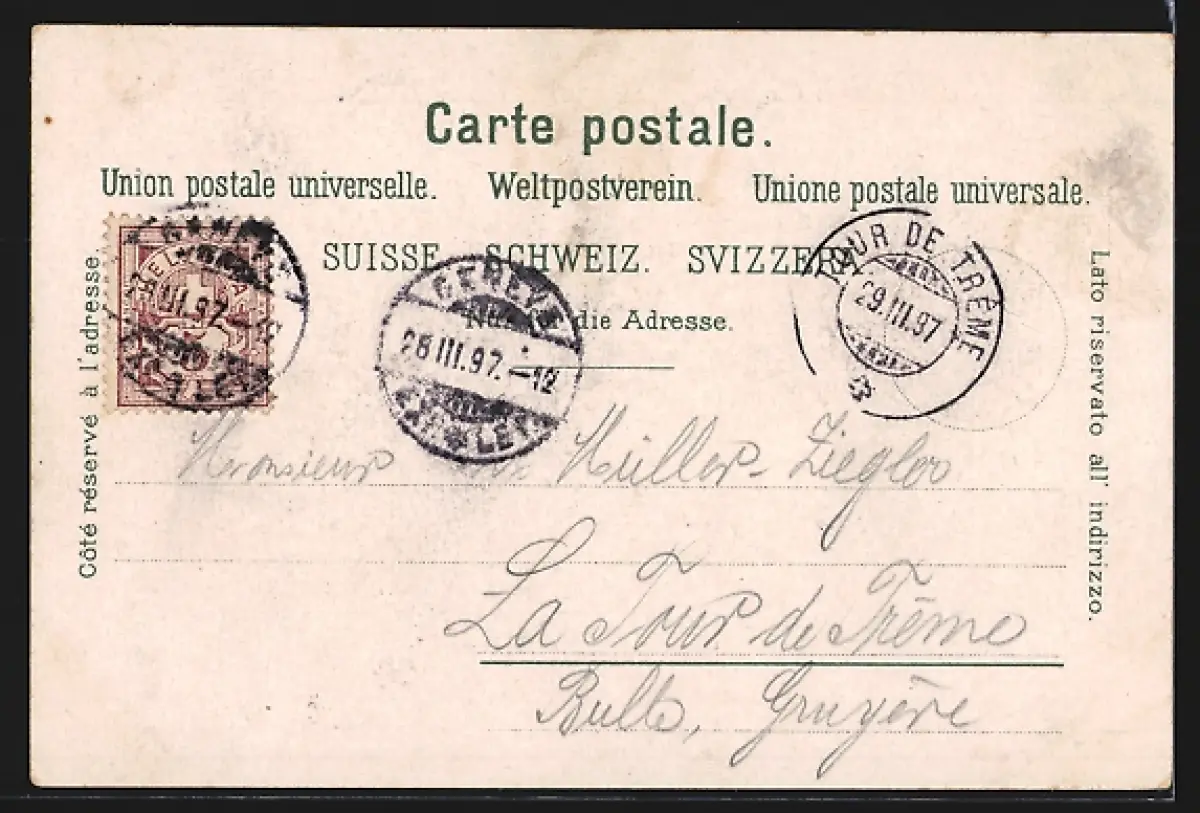 Carte postale.
Union postale universelle. Weltpostverein. Unione postale universale.
SUISSE. SCHWEIZ. SVIZZERA
Nur für die Adresse.
Côté réservé à l'adresse.
Lato riservato all' indirizzo.
28 III.97.–12
EXP. LETT.
TOUR DE TRÊME
29.III.97
Monsieur Müller-Ziegler
La Tour de Trême
Bulle, Gruyère